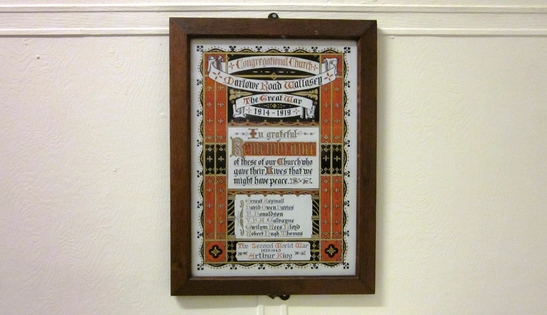 Congregational Church
Marlowe Road Wallasey
The Great War
1914 - 1919
In grateful
Remembrance
of these of our Church who
gave their Lives that we
might have peace.
Ernest Aspinall
David Owen Davies
Donaldson
Gwilym Rees Lloyd
Robert Hugh Thomas
The Second World War
1939-1945
Arthur King